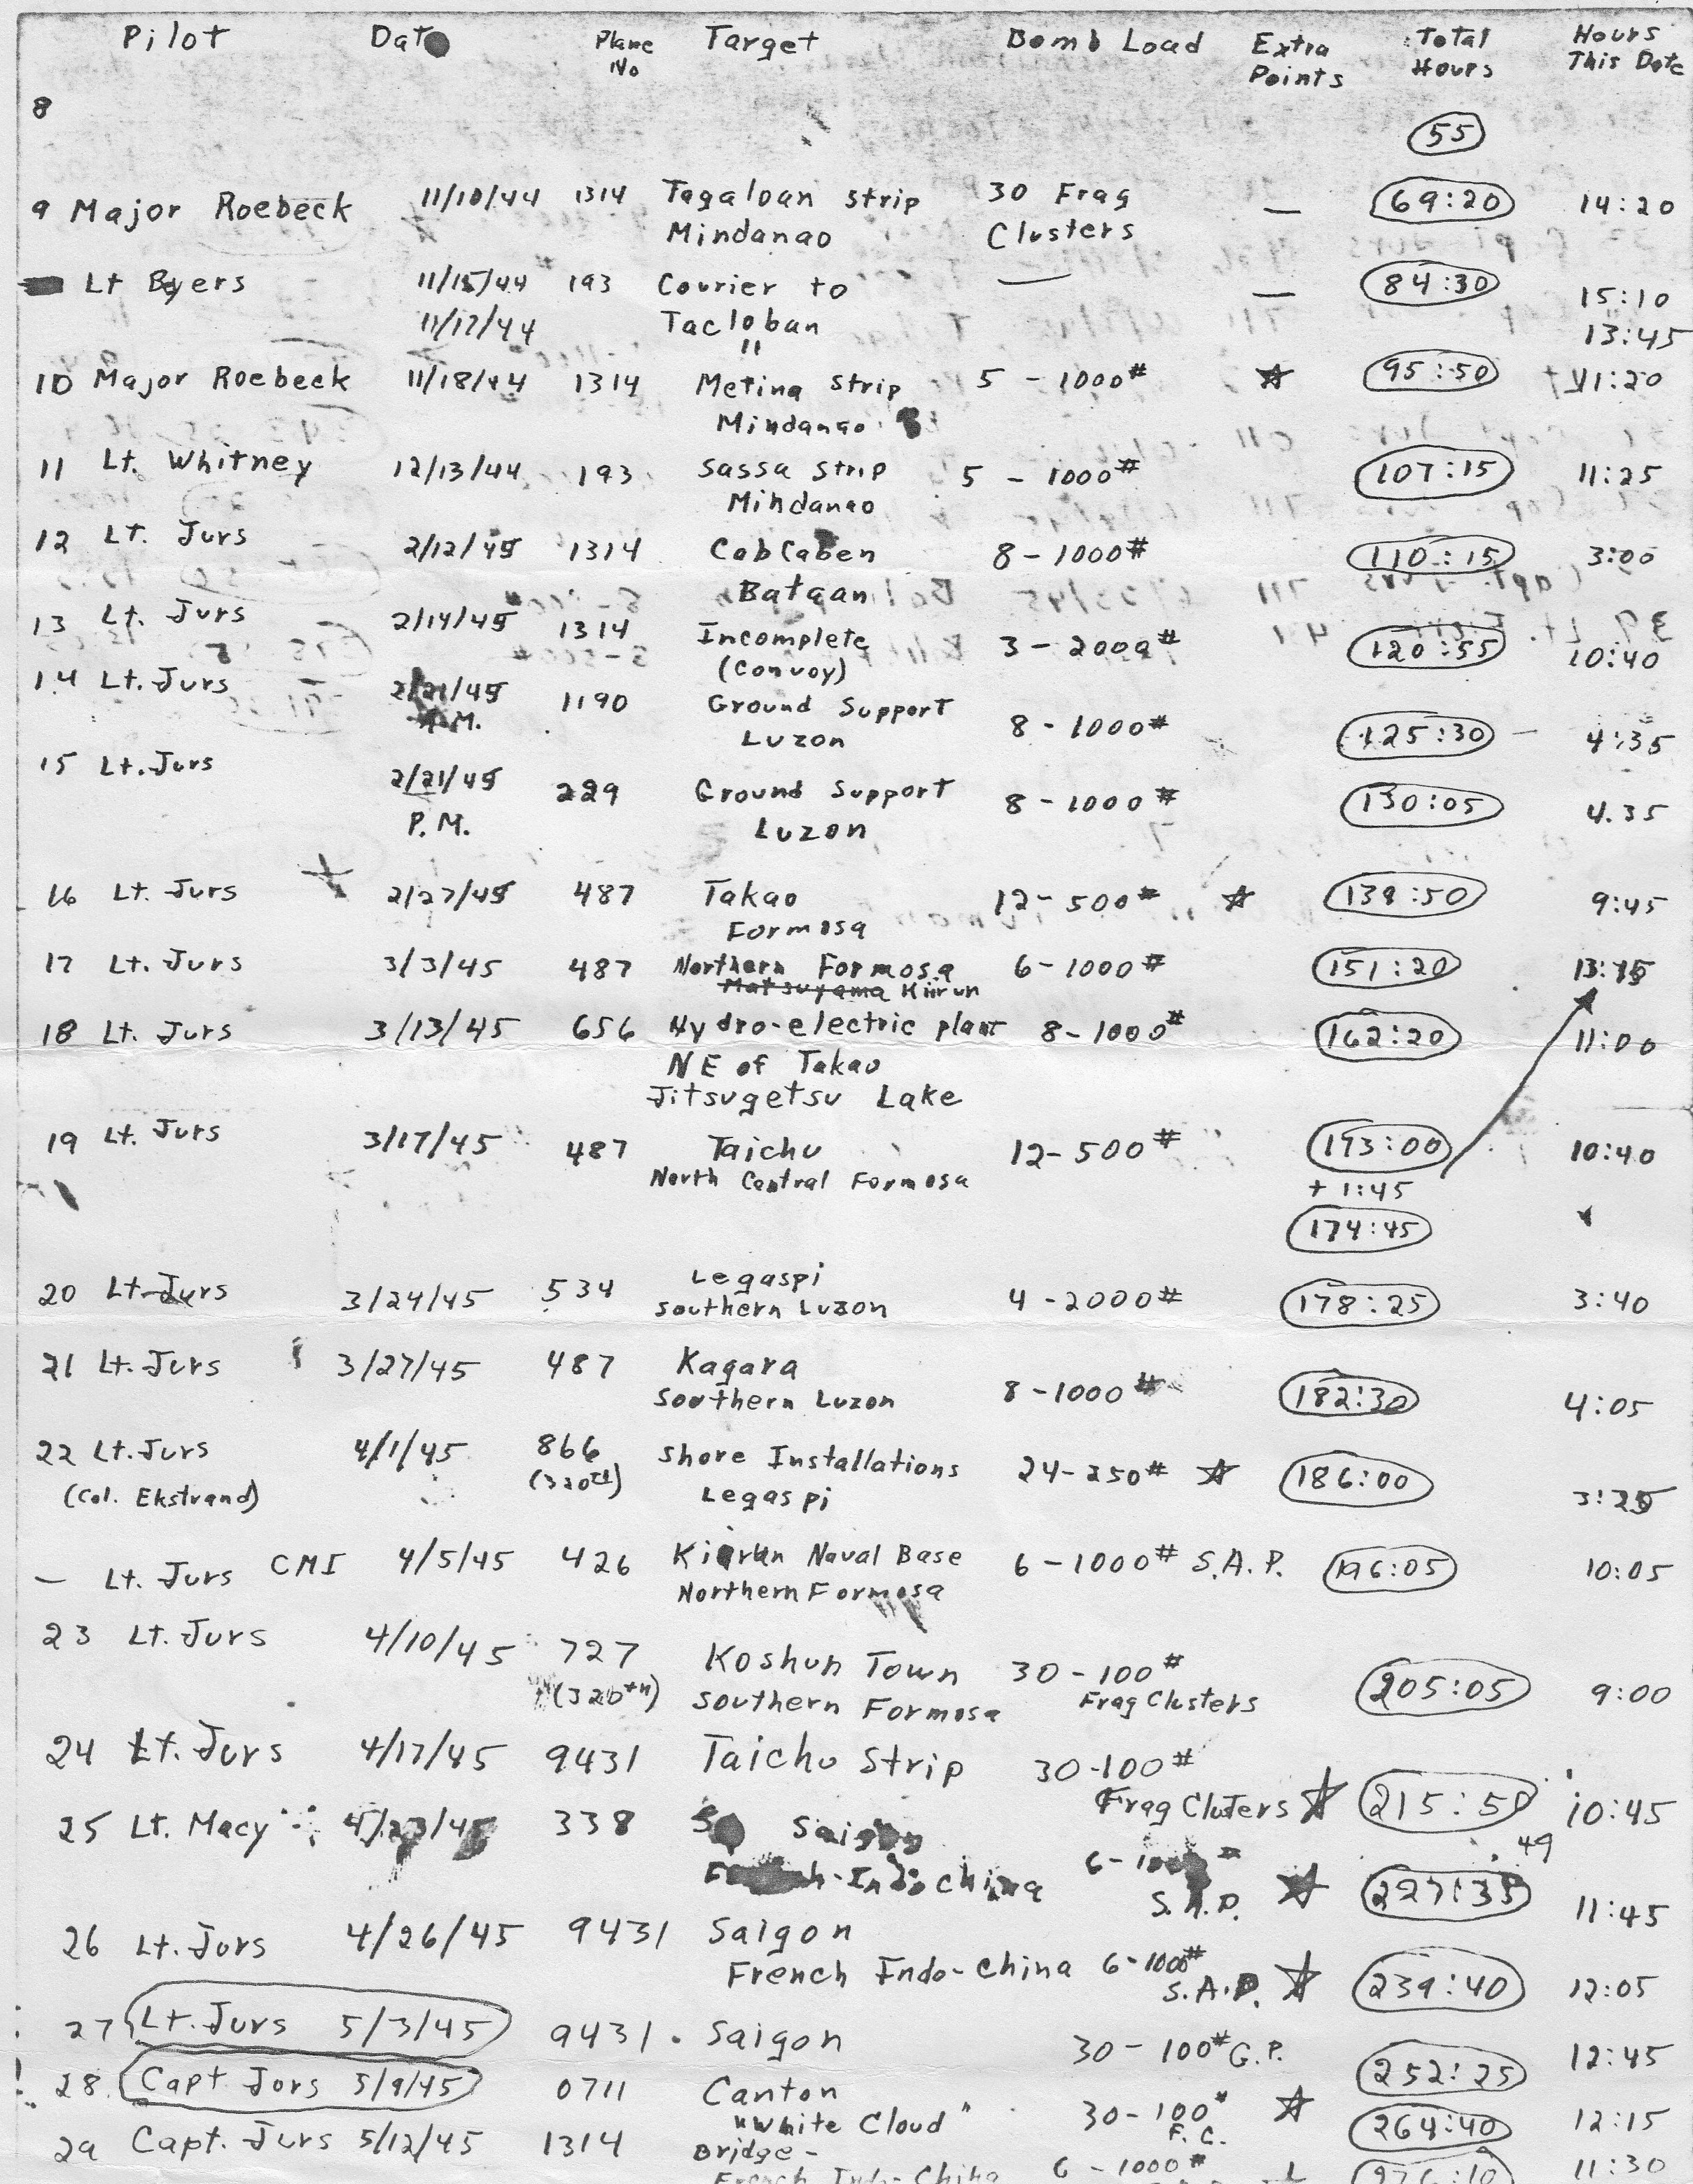 Pilot Date Plane No Target Bomb Load Extra Points Total Hours Hours This Date
8
55
9 Major Roebeck 11/10/44 1314 Tagaloan Strip 30 Frag — 69:20 14:20
Mindanao Clusters
Lt Byers 11/15/44 193 Courier to — — 84:30 15:10
11/17/44 Tacloban 13:45
"
10 Major Roebeck 11/18/44 1314 Metina Strip 5 - 1000# ☆ 95:50 11:20
Mindanao
11 Lt. Whitney 12/13/44 193 Sassa Strip 5 - 1000# 107:15 11:25
Mindanao
12 Lt. Jurs 2/12/45 1314 Cabcaben 8-1000# 110:15 3:00
Bataan
13 Lt. Jurs 2/14/45 1314 Incomplete 3-2000# 120:55 10:40
(Convoy)
14 Lt. Jurs 2/21/45 1190 Ground Support 8-1000# 125:30 4:35
A.M. Luzon
15 Lt. Jurs 2/21/45 229 Ground Support 8-1000# 130:05 4.35
P.M. Luzon
16 Lt. Jurs 2/27/45 487 Takao 12-500# ☆ 139:50 9:45
Formosa
17 Lt. Jurs 3/3/45 487 Northern Formosa 6-1000# 151:20
Matsuyama Kiirun
18 Lt. Jurs 3/13/45 656 Hydro-electric plant 8-1000# 162:20 11:00
NE of Takao
Jitsugetsu Lake
19 Lt. Jurs 3/17/45 487 Taichu 12-500# 173:00 10:40
North Central Formosa
+ 1:45
174:45
20 Lt. Jurs 3/24/45 534 Legaspi 4-2000# 178:25 3:40
Southern Luzon
21 Lt. Jurs 3/27/45 487 Kagara 8-1000# 182:30 4:05
Southern Luzon
22 Lt. Jurs 4/1/45 866 Shore Installations 24-250# ☆ 186:00
(Col. Ekstrand) (320th) Legaspi
— Lt. Jurs CMI 4/5/45 426 Kiirun Naval Base 6-1000# S.A.P. 196:05 10:05
Northern Formosa
23 Lt. Jurs 4/10/45 727 Koshun Town 30-100# 205:05 9:00
(320th) Southern Formosa Frag Clusters
24 Lt. Jurs 4/17/45 9431 Taichu Strip 30-100# 215:50 10:45
Frag Cluters ☆
49
25 Lt. Macy 4/23/45 338 Saigon 6-1000# 227:35 11:45
French-Indo china S.A.P. ☆
26 Lt. Jurs 4/26/45 9431 Saigon 239:40 12:05
French Indo-China 6-1000# S.A.P. ☆
27 Lt. Jurs 5/3/45 9431 Saigon 30-100# G.P. 252:25 12:45
28 Capt Jurs 5/9/45 0711 Canton 30-100# ☆ 264:40 12:15
"White Cloud" F.C.
29 Capt. Jurs 5/12/45 1314 Bridge - 6-1000# 276:10 11:30
French Indo-China